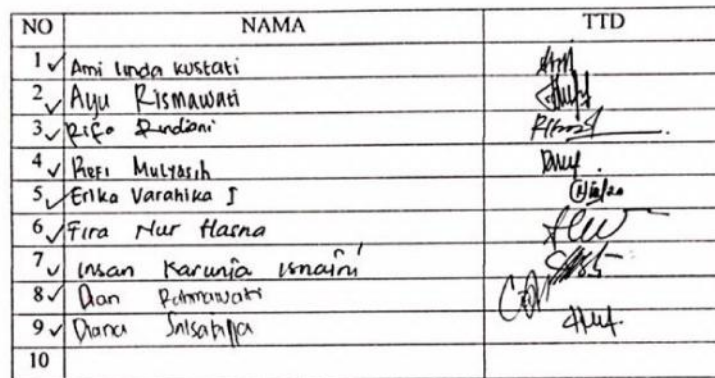 NO NAMA TTD
1 ✓ Ami linda kustati
2 ✓ Ayu Rismawati
3 ✓ Rifa Rindiani
4 ✓ Refi Mulyasih
5 ✓ Erika Varahika I
6 ✓ Fira Nur Hasna
7 ✓ Insan Karunia Isnaini
8 ✓ Dian Rahmawati
9 ✓ Diana Salsabilla
10